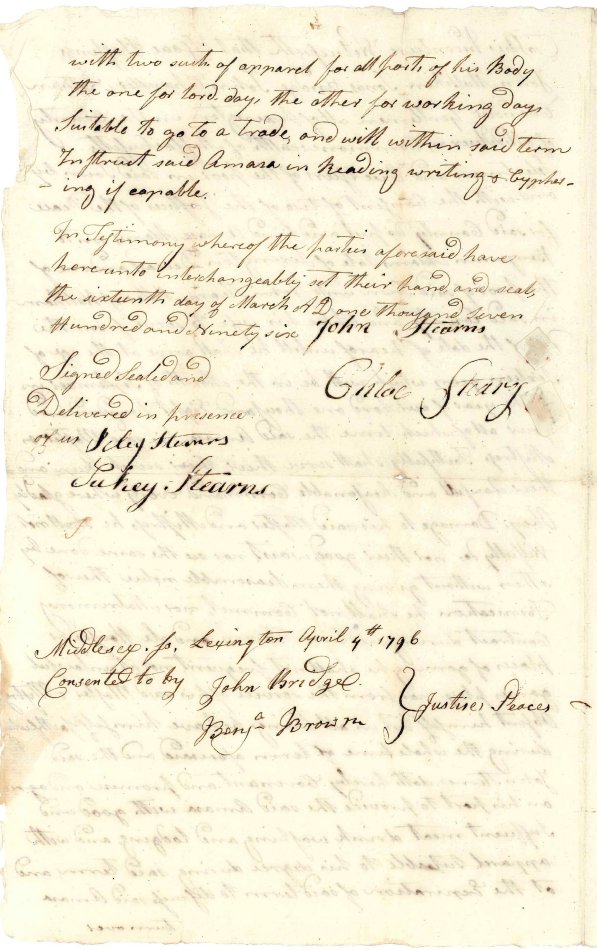 with two suits of apparel for all parts of his Body
the one for lord days the other for working days
Suitable to go to a trade, and will within said term
Instruct said Amasa in Reading writing & Cypher-
-ing if capable.
In Testimony whereof the parties aforesaid have
hereunto interchangeably set their hands and seals
the sixteenth day of March AD one thousand seven
Hundred and Ninety six John Stearns
Signed Sealed and
Delivered in presence
of us Stearns
Stearns
Middlesex ss. Lexington April 4th 1796
Consented to by John Bridge
Benja Brown
Justises Peaces